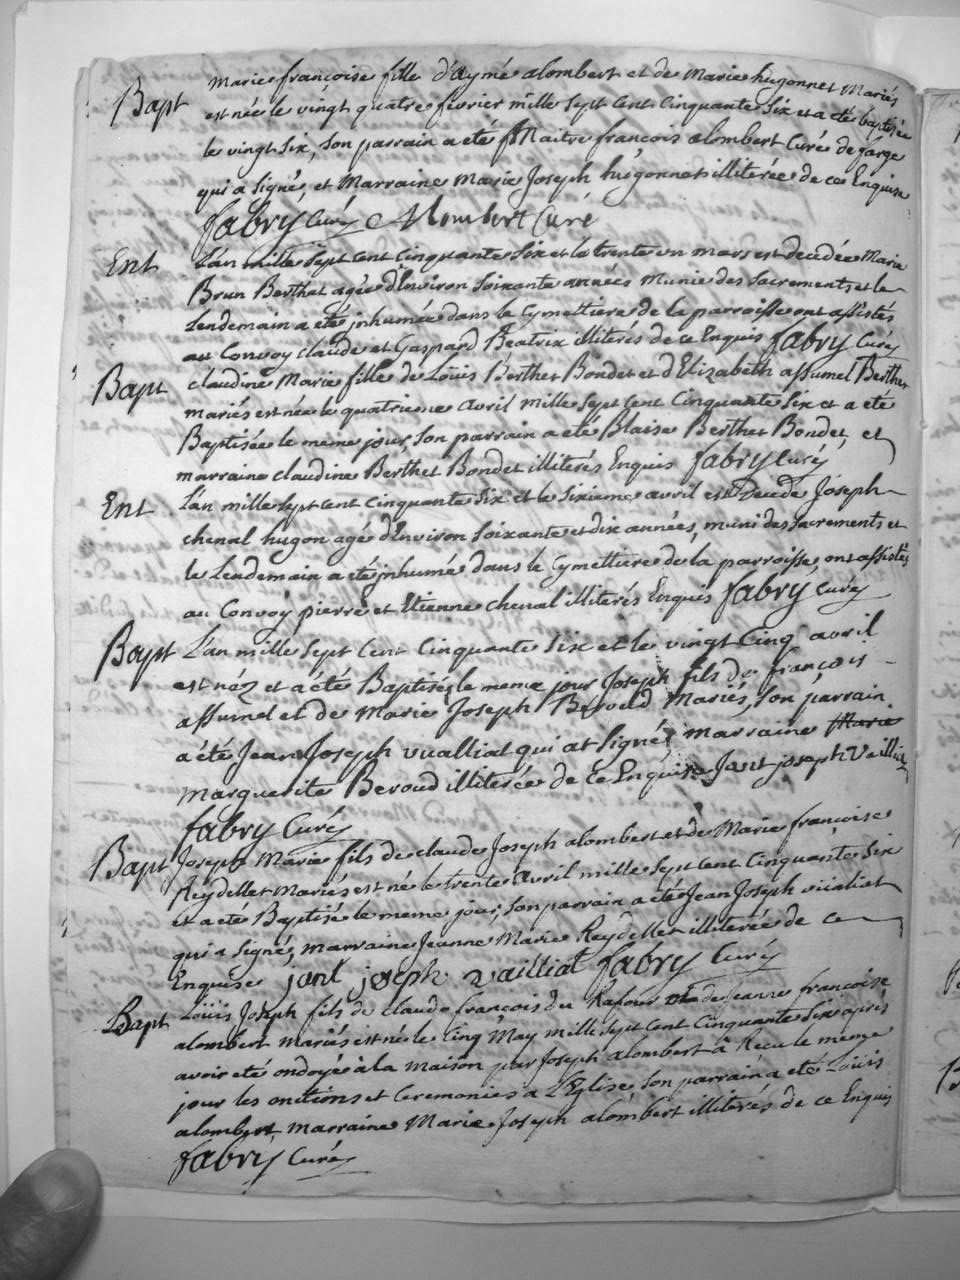 Bapt Marie françoise fille d'Aymé alombert et de Marie hugonnet Mariés
est née le vingt quatre fevrier mille sept cent cinquante six et a été baptisée
le vingt six, son parrain a été Maitre francois alombert Curé de
qui a signé, et Marraine Marie Joseph hugonnet illiterée de ce Enquise
fabry Curé Alombert Curé
Ent L'an mille sept cent cinquante six et le trente un mars est decedée Marie
Brun Berthet agée d'Environ soixante années munie des sacrements et le
Lendemain a été inhumée dans le Cymettiere de la parroisse ont assistés
au Convoy claude et Gaspard Beatrix illiterés de ce Enquis fabry Curé
Bapt claudine Marie fille de Loüis Berthet Bondet et d'Elizabeth assumel Berthet
mariés est née le quatrieme avril mille sept cent cinquante six et a été
Baptisée le même jour, son parrain a été Blaise Berthet Bondet, et
marraine claudine Berthet Bondet illiterés Enquis fabry Curé
Ent L'an mille sept cent cinquante six et le sixieme avril est decedé Joseph
chenal hugon agé d'Environ soixante et dix années, muni des sacrements et
le Lendemain a été inhumé dans le Cymettiere de la parroisse, ont assistés
au Convoy pierre et Etienne chenal illiterés Enquis fabry Curé
Bapt L'an mille sept cent cinquante six et le vingt cinq avril
est néz et a été Baptisé, le meme jour Joseph fils de françois
assumel et de Marie Joseph Beroud Mariés, son parrain
a été Jean Joseph vuailliat qui at signé, marraine Marie
marguerite Beroud illiterée de ce Enquise Jant joseph Vailliat
fabry Curé
Bapt Joseph Marie fils de claude Joseph alombert et de Marie françoise
Reydellet Mariés est né le trente avril mille sept cent cinquante six
et a été Baptisé le meme jour, son parrain a été Jean Joseph vüialiat
qui a signé, marraine Jeanne Marie Reydellet illiterée de ce
Enquise jant joseph vailliat fabry Curé
Bapt Loüis Joseph fils de claude françois du Rafour de jeanne françoise
alombert mariés est né le cinq May mille sept cent cinquante six après
avoir eté ondoyé à la maison par Joseph alombert à Recu le même
jour les onctions et Ceremonies a L'Eglise, son parrain a eté Loüis
alombert, marraine Marie Joseph alombert illiterés de ce Enquis
fabry Curé